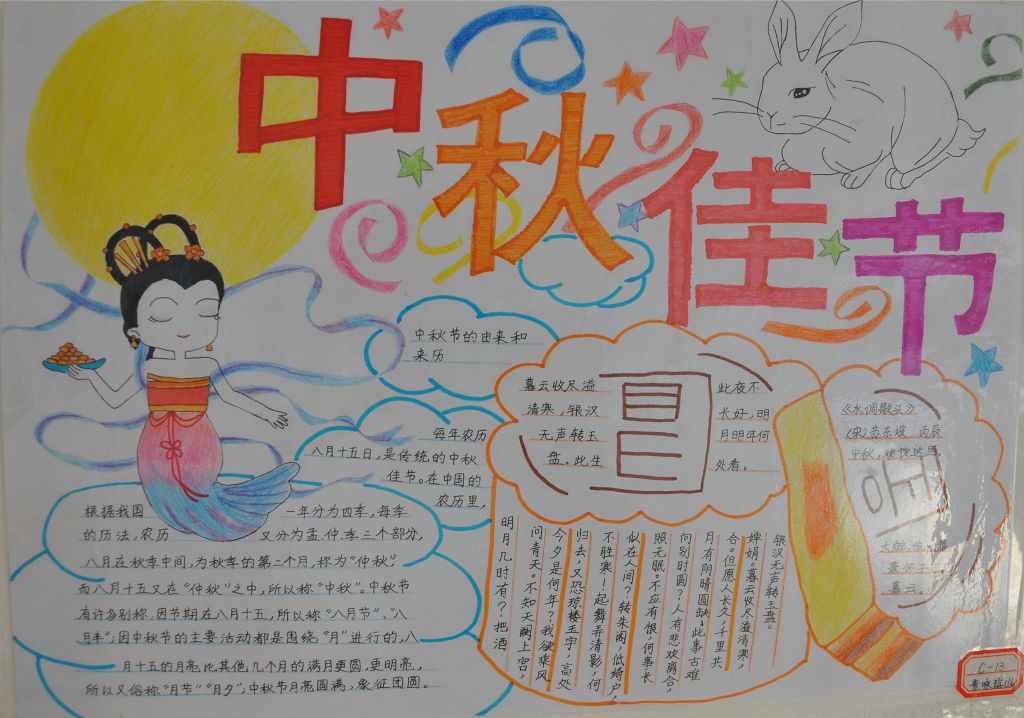 中秋佳节
中秋节的由来和
来历
每年农历
八月十五日，是传统的中秋
佳节。在中国的
农历里，
根据我国 一年分为四季，每季
的历法，农历 又分为孟.仲.季三个部分，
八月在秋季中间，为秋季的第二个月，称为“仲秋”.
而八月十五又在“仲秋”之中，所以称“中秋”。中秋节
有许多别称.因节期在八月十五，所以称“八月节”、“八
月半”，因中秋节的主要活动都是围绕“月”进行的，八
月十五的月亮比其他几个月的满月更圆，更明亮，
所以又俗称“月节”“月夕”，中秋节月亮圆满，象征团圆。
暮云收尽溢
清寒，银汉
无声转玉
盘。此生
此夜不
长好，明
月明年何
处看。
明月几时有？把酒
问青天。不知天阙上宫，
今夕是何年？我欲乘风
归去，又恐琼楼玉宇，高处
不胜寒！起舞弄清影，何
似在人间？转朱阁，低绮户，
照无眠。不应有恨，何事长
向别时圆？人有悲欢离合，
月有阴晴圆缺，此事古难
合。但愿人长久，千里共
婵娟。暮云收尽溢清寒，
银汉无声转玉盘。
《水调歌头》
(宋)苏东坡 丙辰
中秋，欢饮达旦，
暮云。
C-13